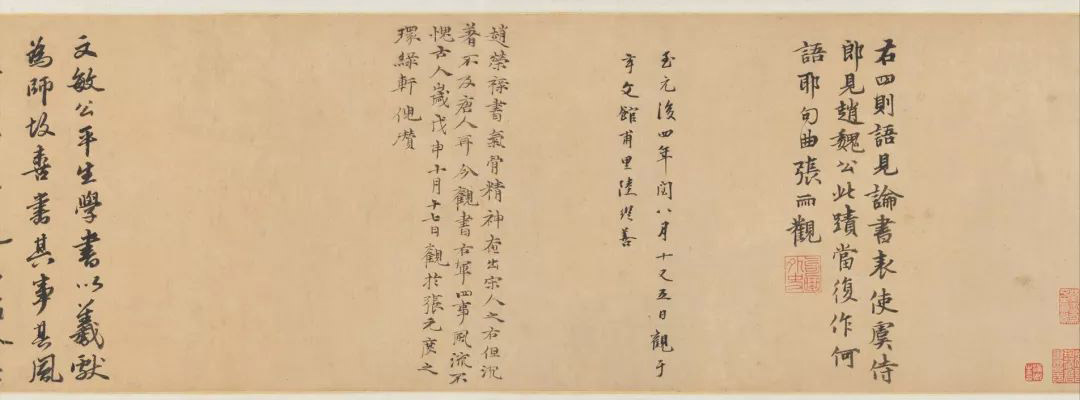 右四則語見論書表使虞侍
郎見趙魏公此蹟當復作何
語耶句曲張雨觀
至元後四年閏八月十又五日觀于
玄文館甫里陸繼善
趙榮祿書氣骨精神奄出宋人之右但沉
著不及唐人耳今觀書右軍四事風流不
愧古人歲戊申十月十七日觀於張元度之
環綠軒倪瓚
文敏公平生學書以羲獻
為師故喜書其事其風